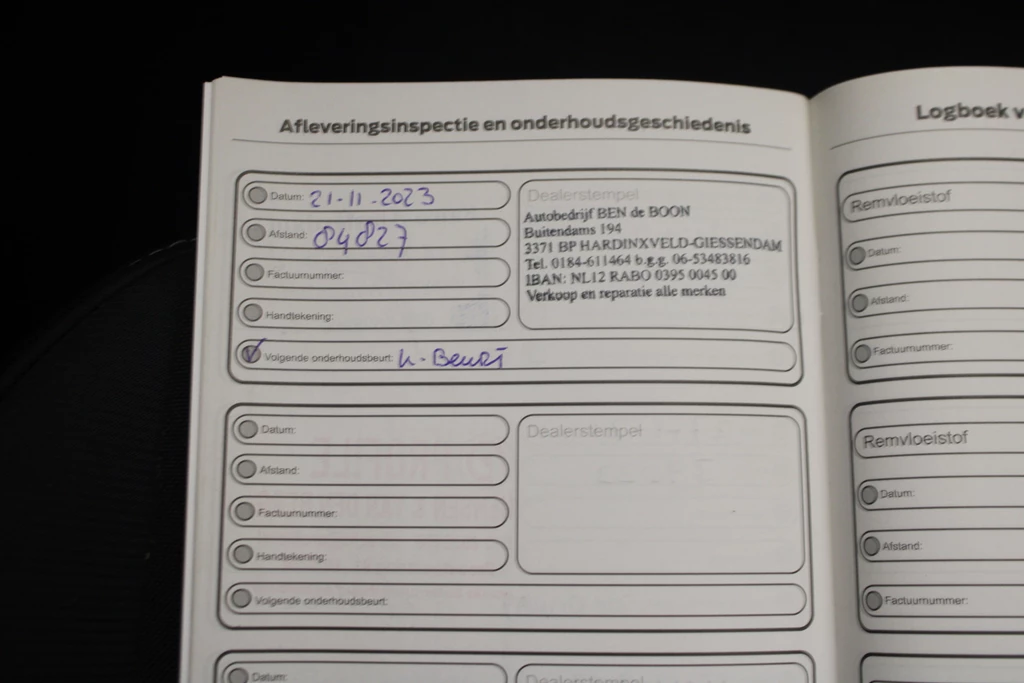 Afleveringsinspectie en onderhoudsgeschiedenis
Datum: 21-11-2023
Afstand: 84827
Factuurnummer:
Handtekening:
Volgende onderhoudsbeurt:
Dealerstempel
Autobedrijf BEN de BOON
Buitendams 194
3371 BP HARDINXVELD-GIESSENDAM
Tel. 0184-611464 b.g.g. 06-53483816
IBAN: NL12 RABO 0395 0045 00
Verkoop en reparatie alle merken
Datum:
Afstand:
Factuurnummer:
Handtekening:
Volgende onderhoudsbeurt:
Dealerstempel
Datum:
Dealerstempel
Logboek v
Remvloeistof
Datum:
Afstand:
Factuurnummer:
Remvloeistof
Datum:
Afstand:
Factuurnummer: